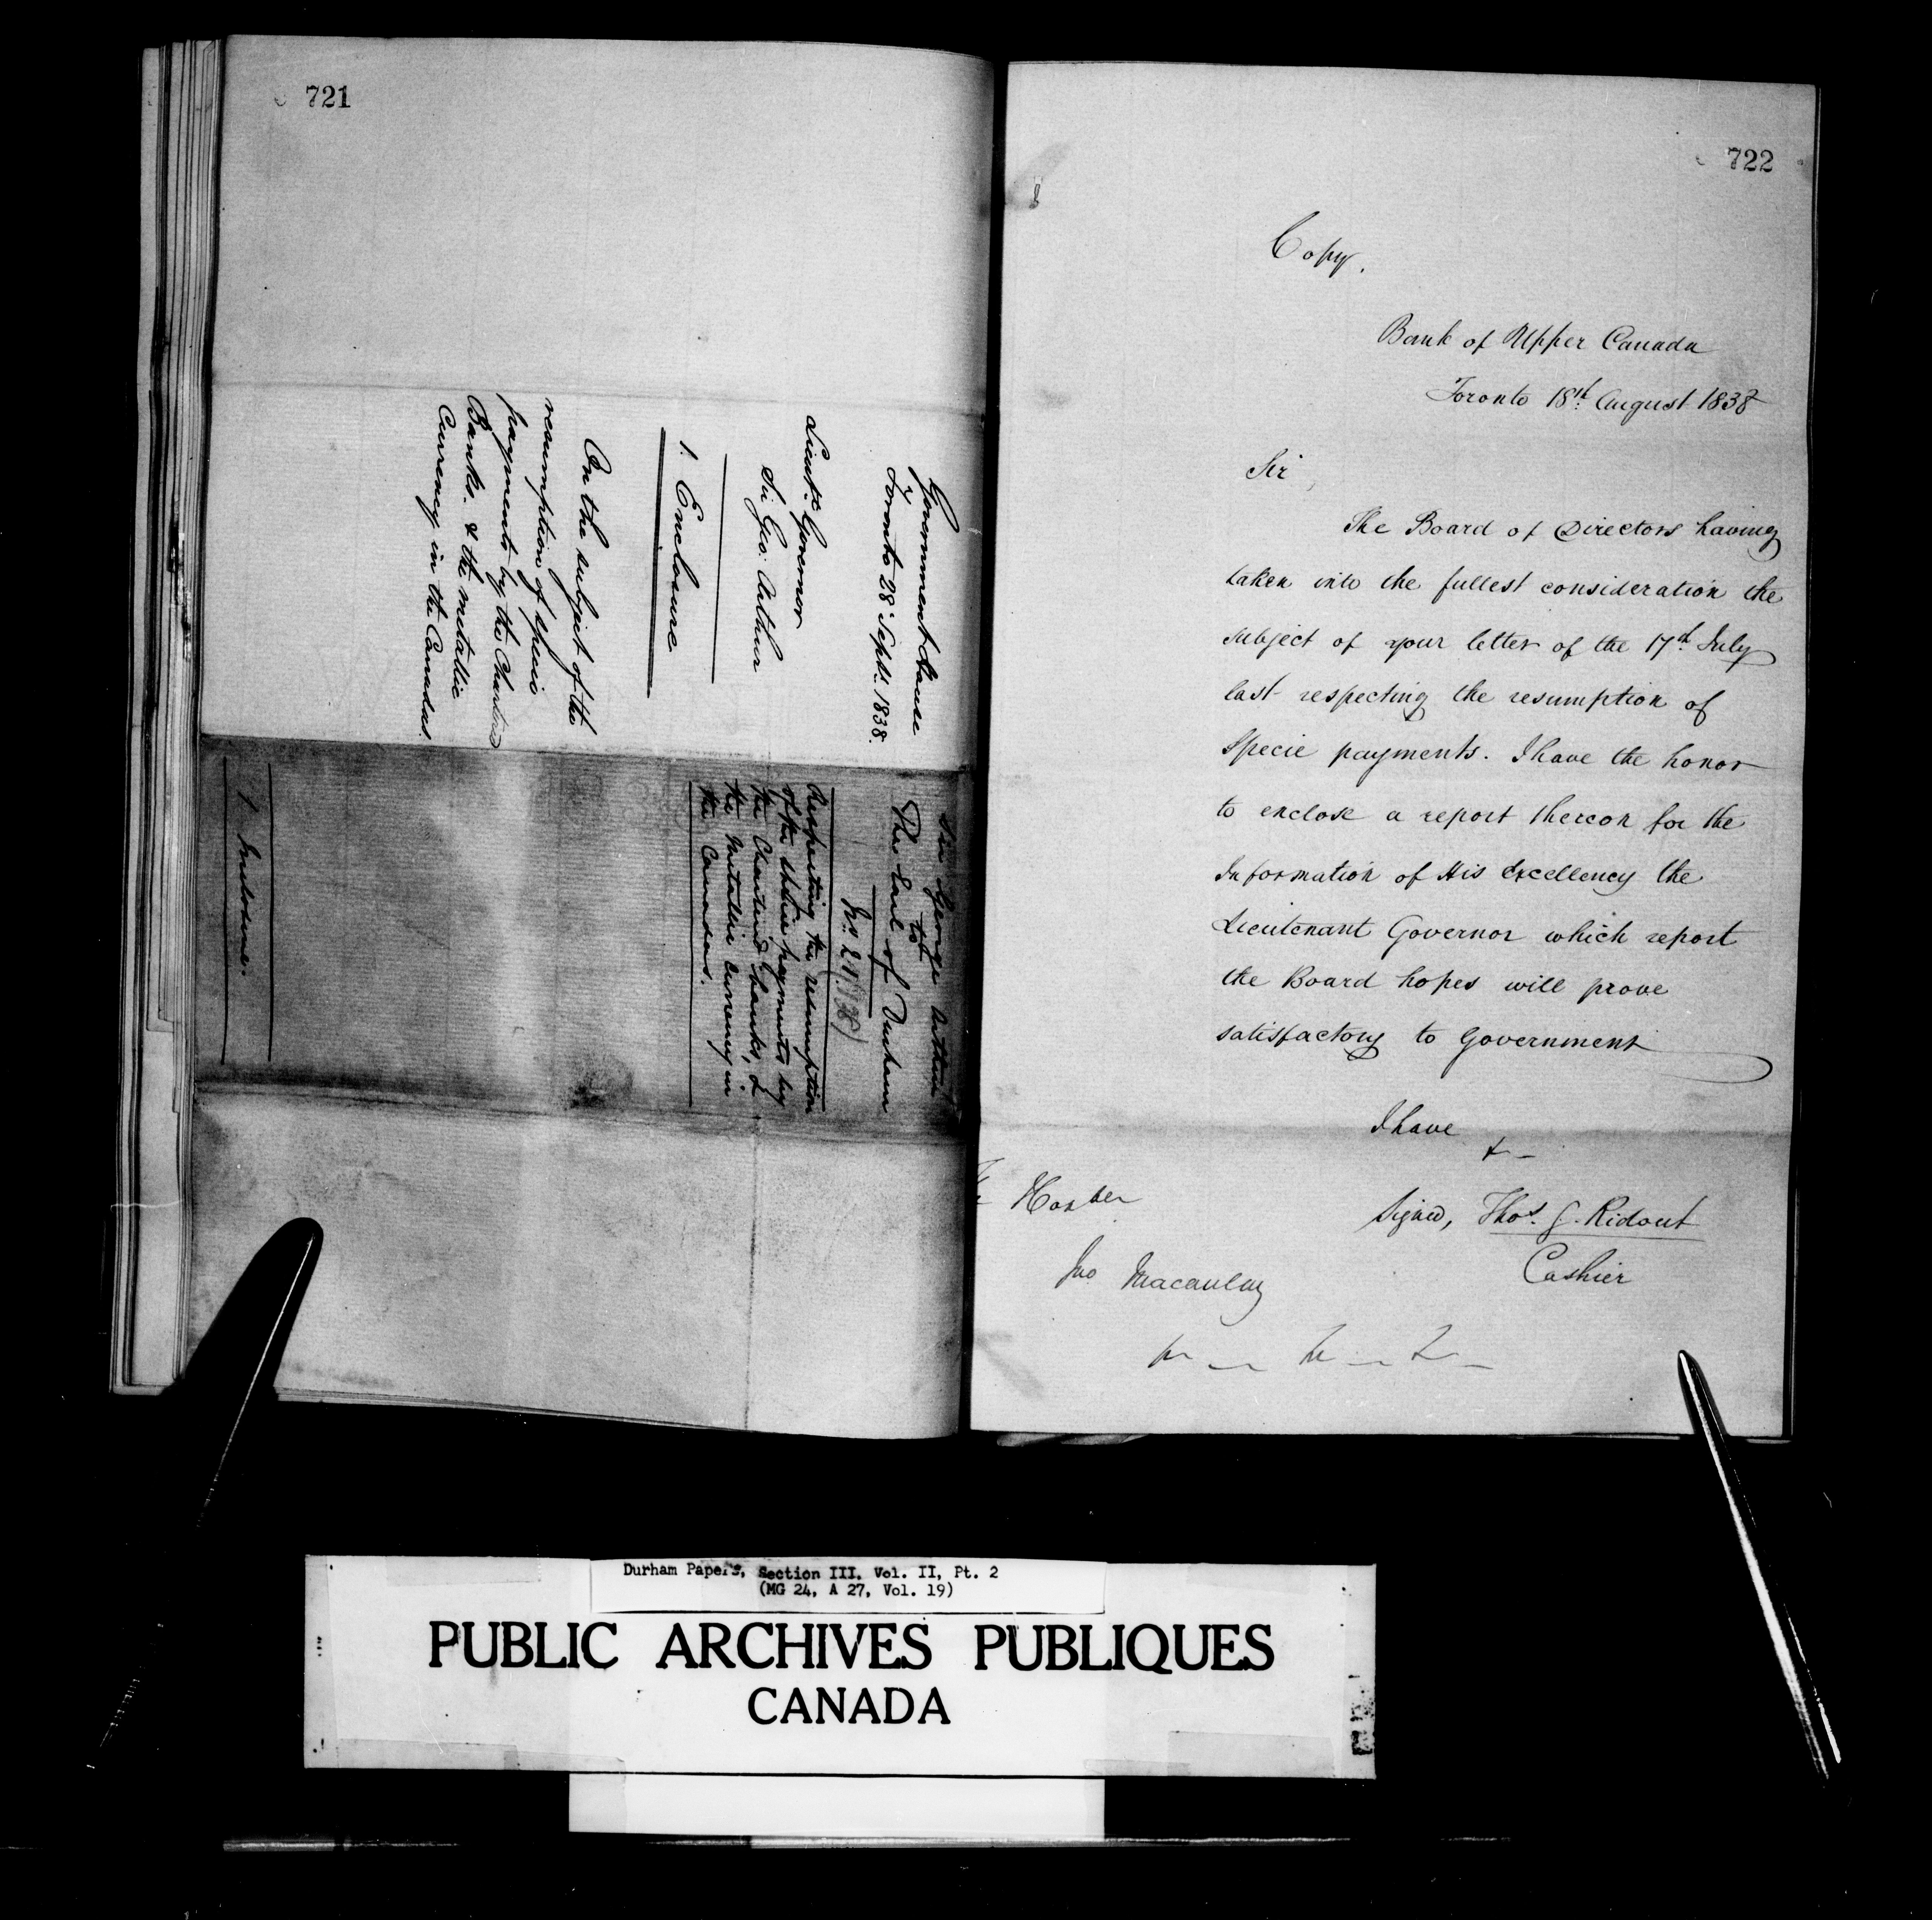 721
Government House
Toronto 28 Septr. 1838.
Lieut. Governor
Sir Geo: Arthur
1. Enclosure
On the subject of the
resumption of specie
payments by the Chartered
Banks. & the metallic
Currency in the Canadas.
Sir George Arthur
to
The Earl of Durham
Respecting the resumption
of the specie payments by
the Chartered Banks, &
the Metallic Currency in
the Canadas.
1 Inclosure.
722
Copy.
Bank of Upper Canada
Toronto 18th August 1838
Sir
The Board of Directors having
taken into the fullest consideration the
subject of your letter of the 17th July
last respecting the resumption of
Specie payments. I have the honor
to enclose a report thereon for the
Information of His Excellency the
Lieutenant Governor which report
the Board hopes will prove
satisfactory to Government
I have
&-
Signed, Thos. G. Ridout
Cashier
Jno Macaulay
Durham Papers, Section III. Vol. II, Pt. 2
(MG 24, A 27, Vol. 19)
PUBLIC ARCHIVES PUBLIQUES
CANADA